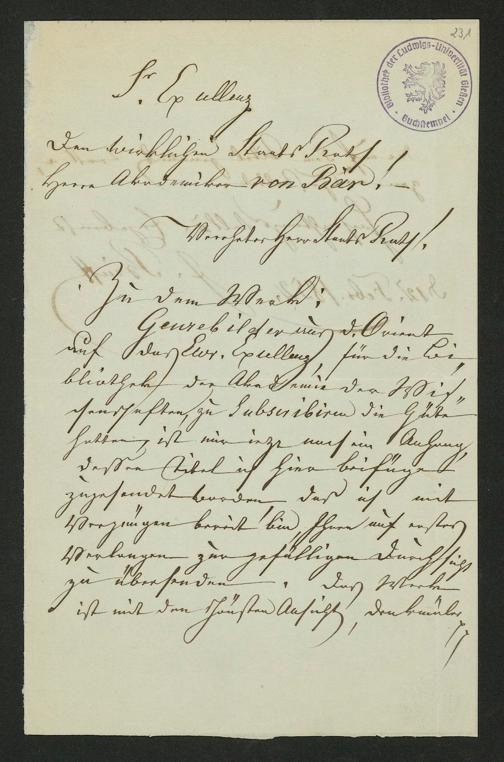 231
Bibliothek der Ludwigs-Universität Gießen
Buchstempel
Sr Excellenz
Den wirklichen Staats Rath
Herrn Akademiker von Bär!
Verehrter Herr Staats Rath!
Zu dem Werk:
Genrebilder aus d. Orient
auf das Eur. Excellenz, für die Bi-
bliothek der Akademie der Wis-
senschaften, zu subscribiren die Güte
hatten, ist mir jetzt noch ein Anhang,
dessen Titel ich hier beifüge
zugesendet worden, das ich mit
Vergnügen bereit bin Ihnen auf erstes
Verlangen zur gefälligen Durchsicht
zu übersenden. Das Werk
ist mit den schönsten Ansicht, Denkmäler